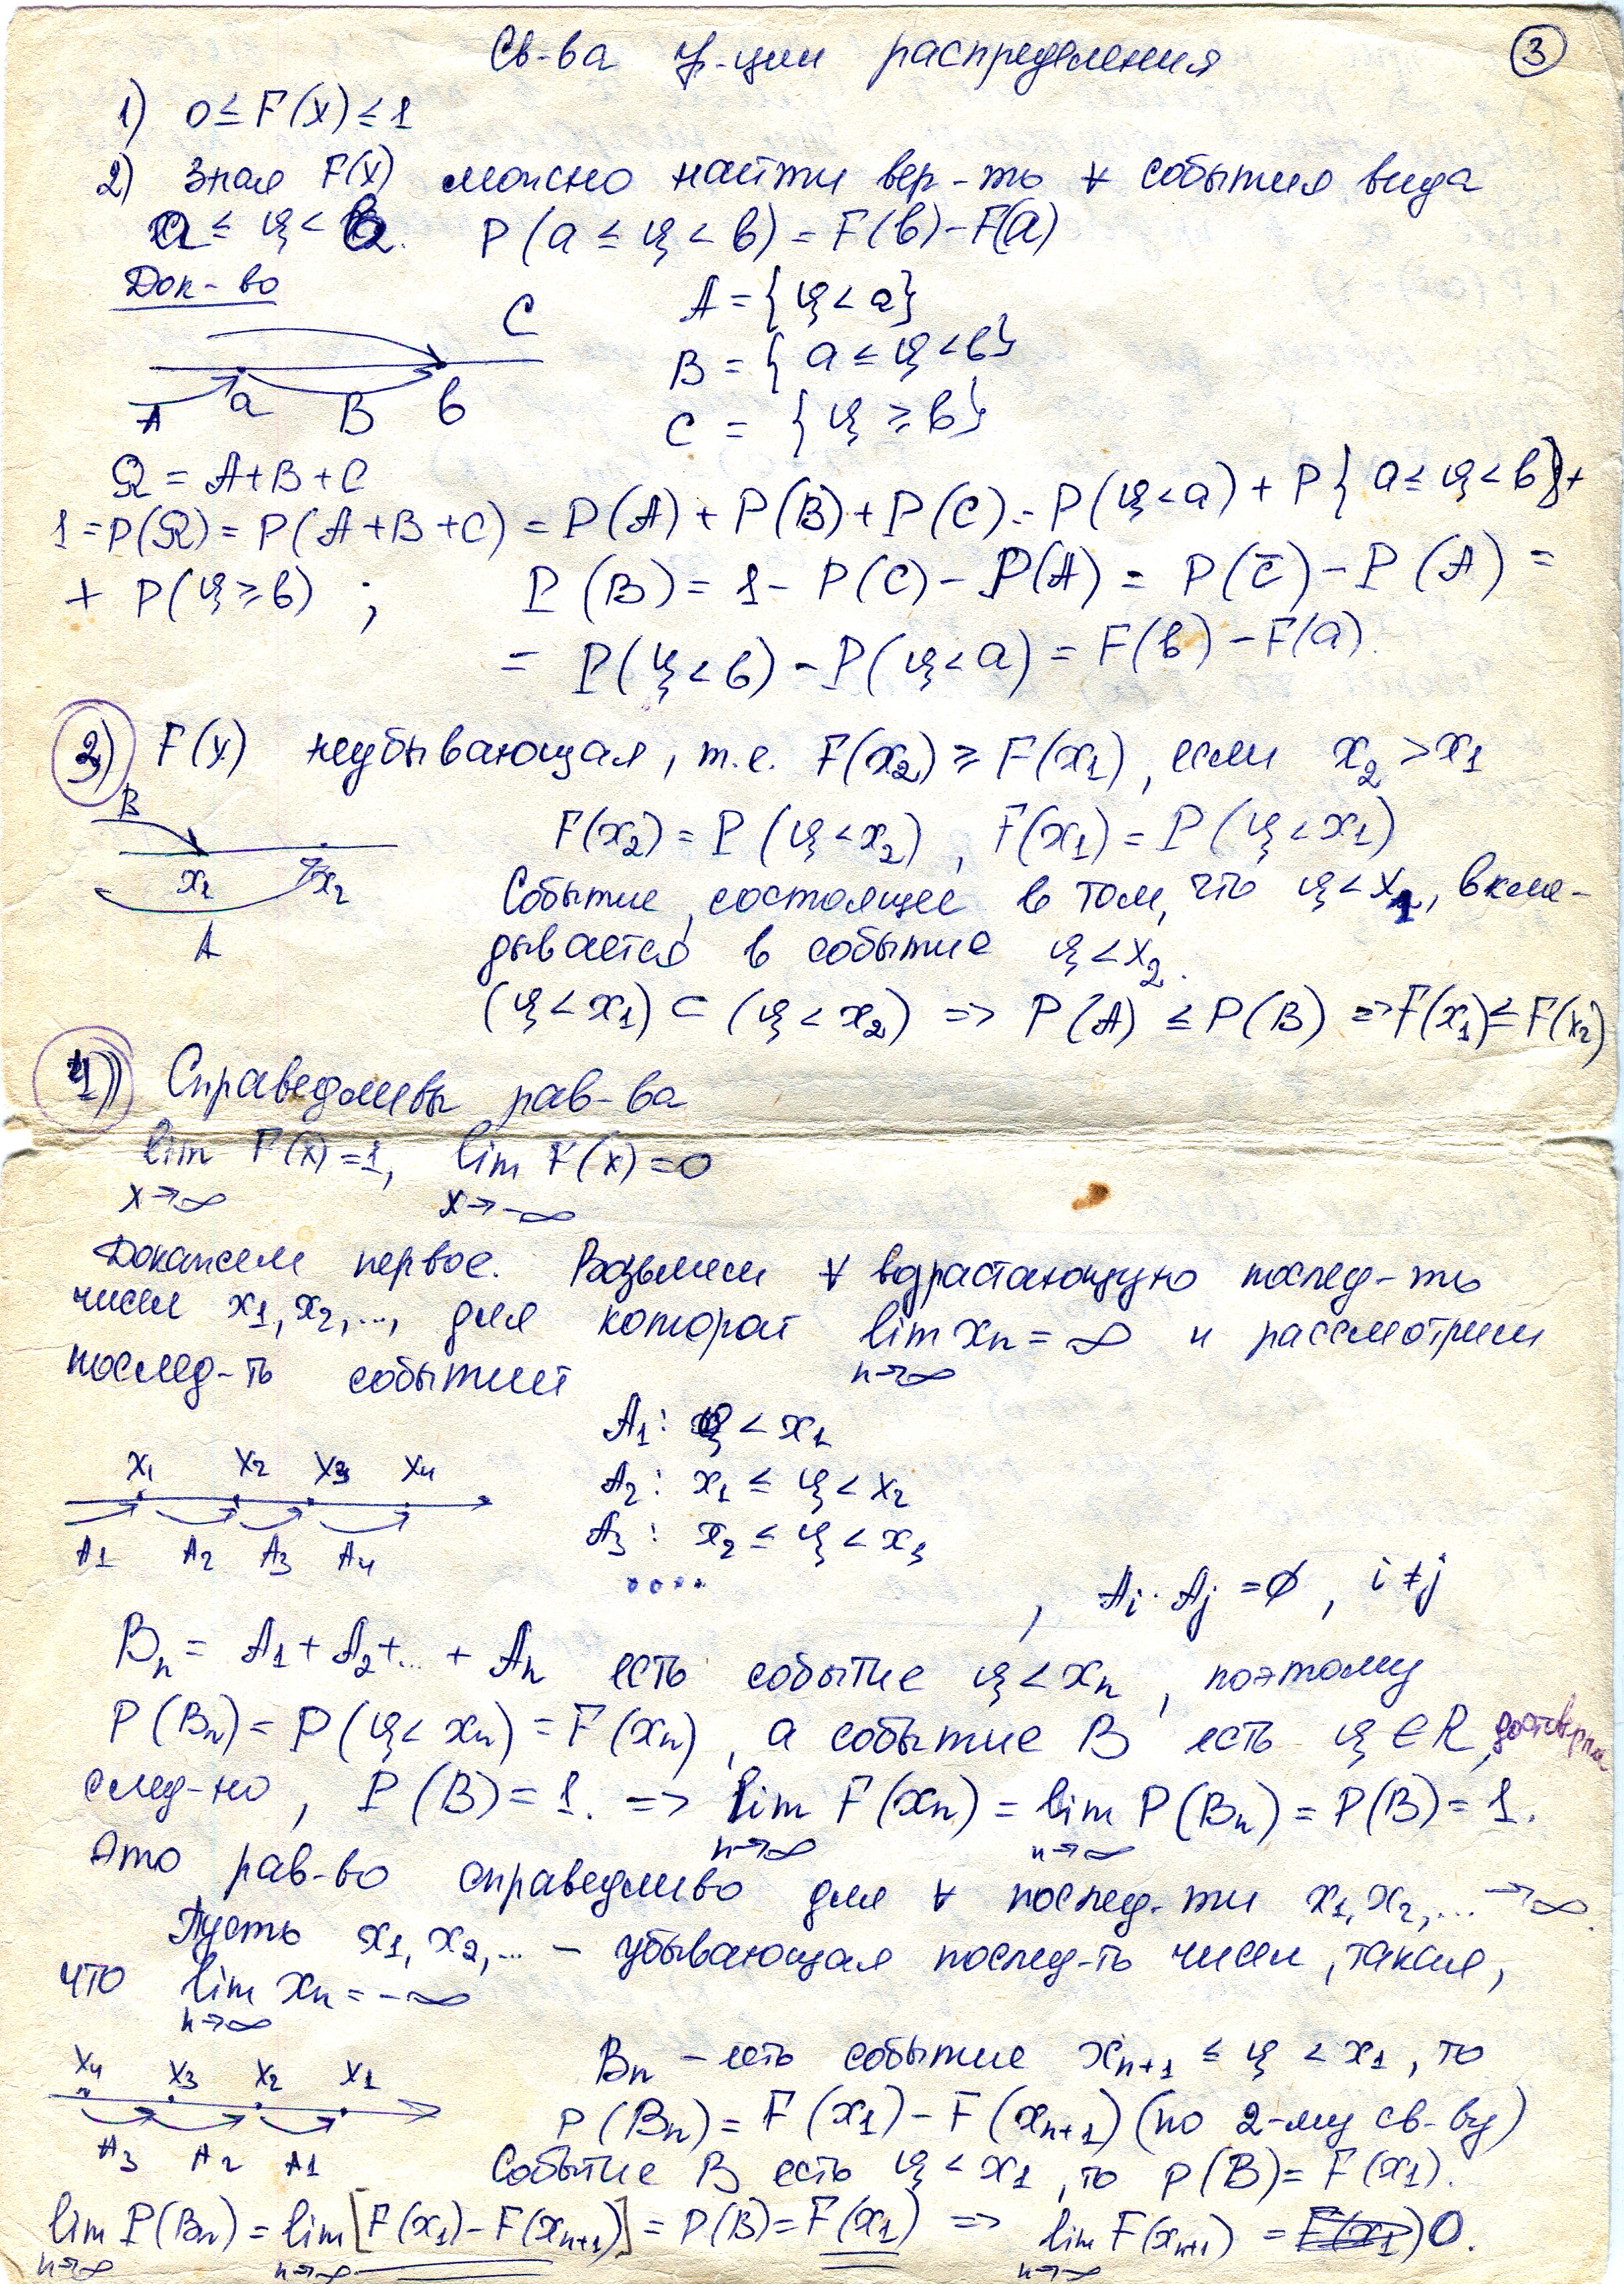 Св-ва ф-ции распределения
3
1) 0 ≤ F(x) ≤ 1
2) Зная F(x) можно найти вер-ть ∀ события вида
a ≤ ξ < b. P(a ≤ ξ < b) = F(b) - F(a)
Док-во
A = {ξ < a}
C
B = {a ≤ ξ < b}
A a B b
C = {ξ ≥ b}
Ω = A+B+C
1 = P(Ω) = P(A+B+C) = P(A) + P(B) + P(C) = P(ξ < a) + P{a ≤ ξ < b} +
+ P(ξ ≥ b) ; P(B) = 1 - P(C) - P(A) = P(C̄) - P(A) =
= P(ξ < b) - P(ξ < a) = F(b) - F(a).
3) F(x) неубывающая, т.е. F(x₂) ≥ F(x₁), если x₂ > x₁
B
F(x₂) = P(ξ < x₂), F(x₁) = P(ξ < x₁)
x₁ x₂
Событие, состоящее в том, что ξ < x₁, вкла-
A
дывается в событие ξ < x₂.
(ξ < x₁) ⊂ (ξ < x₂) => P(A) ≤ P(B) => F(x₁) ≤ F(x₂)
4) Справедливы рав-ва
lim F(x) = 1, lim F(x) = 0
x→∞ x→-∞
Докажем первое. Возьмем ∀ возрастающую послед-ть
чисел x₁, x₂, ..., для которой lim xₙ = ∞ и рассмотрим
n→∞
послед-ть событий
A₁: ξ < x₁
x₁ x₂ x₃ x₄
A₂: x₁ ≤ ξ < x₂
A₁ A₂ A₃ A₄
A₃: x₂ ≤ ξ < x₃
....
, Aᵢ · Aⱼ = ∅, i ≠ j
Bₙ = A₁ + A₂ + ... + Aₙ есть событие ξ < xₙ, поэтому
P(Bₙ) = P(ξ < xₙ) = F(xₙ), а событие B есть ξ ∈ R,
след-но, P(B) = 1. => lim F(xₙ) = lim P(Bₙ) = P(B) = 1.
n→∞ n→∞
Это рав-во справедливо для ∀ послед-ти x₁, x₂, ... → ∞.
Пусть x₁, x₂, ... - убывающая послед-ть чисел, такая,
что lim xₙ = -∞
n→∞
x₄ x₃ x₂ x₁
Bₙ - есть событие xₙ₊₁ ≤ ξ < x₁, то
P(Bₙ) = F(x₁) - F(xₙ₊₁) (по 2-му св-ву)
A₃ A₂ A₁
Событие B есть ξ < x₁, то P(B) = F(x₁).
lim P(Bₙ) = lim [F(x₁) - F(xₙ₊₁)] = P(B) = F(x₁) => lim F(xₙ₊₁) = 0.
n→∞ n→∞ n→∞